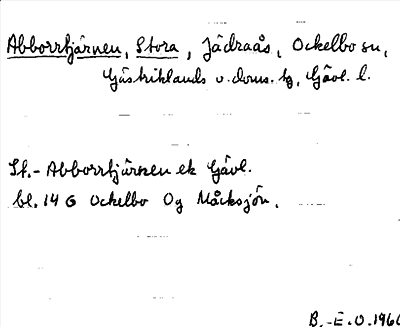 Abborrtjärnen, Stora, Jädraås, Ockelbo sn,
Gästriklands v. doms. tg, Gävl. l.
St.-Abborrtjärnen ek Gävl.
bl. 14 G Ockelbo Og Måcksjön.
B.-E.O.196